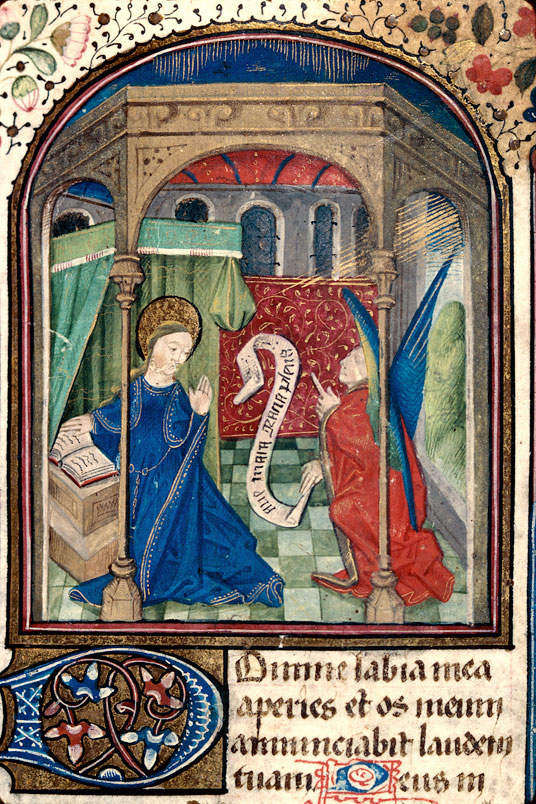 Aue maria gracia plena
Domine labia mea
aperies et os meum
annunciabit laudem
tuam Deus in